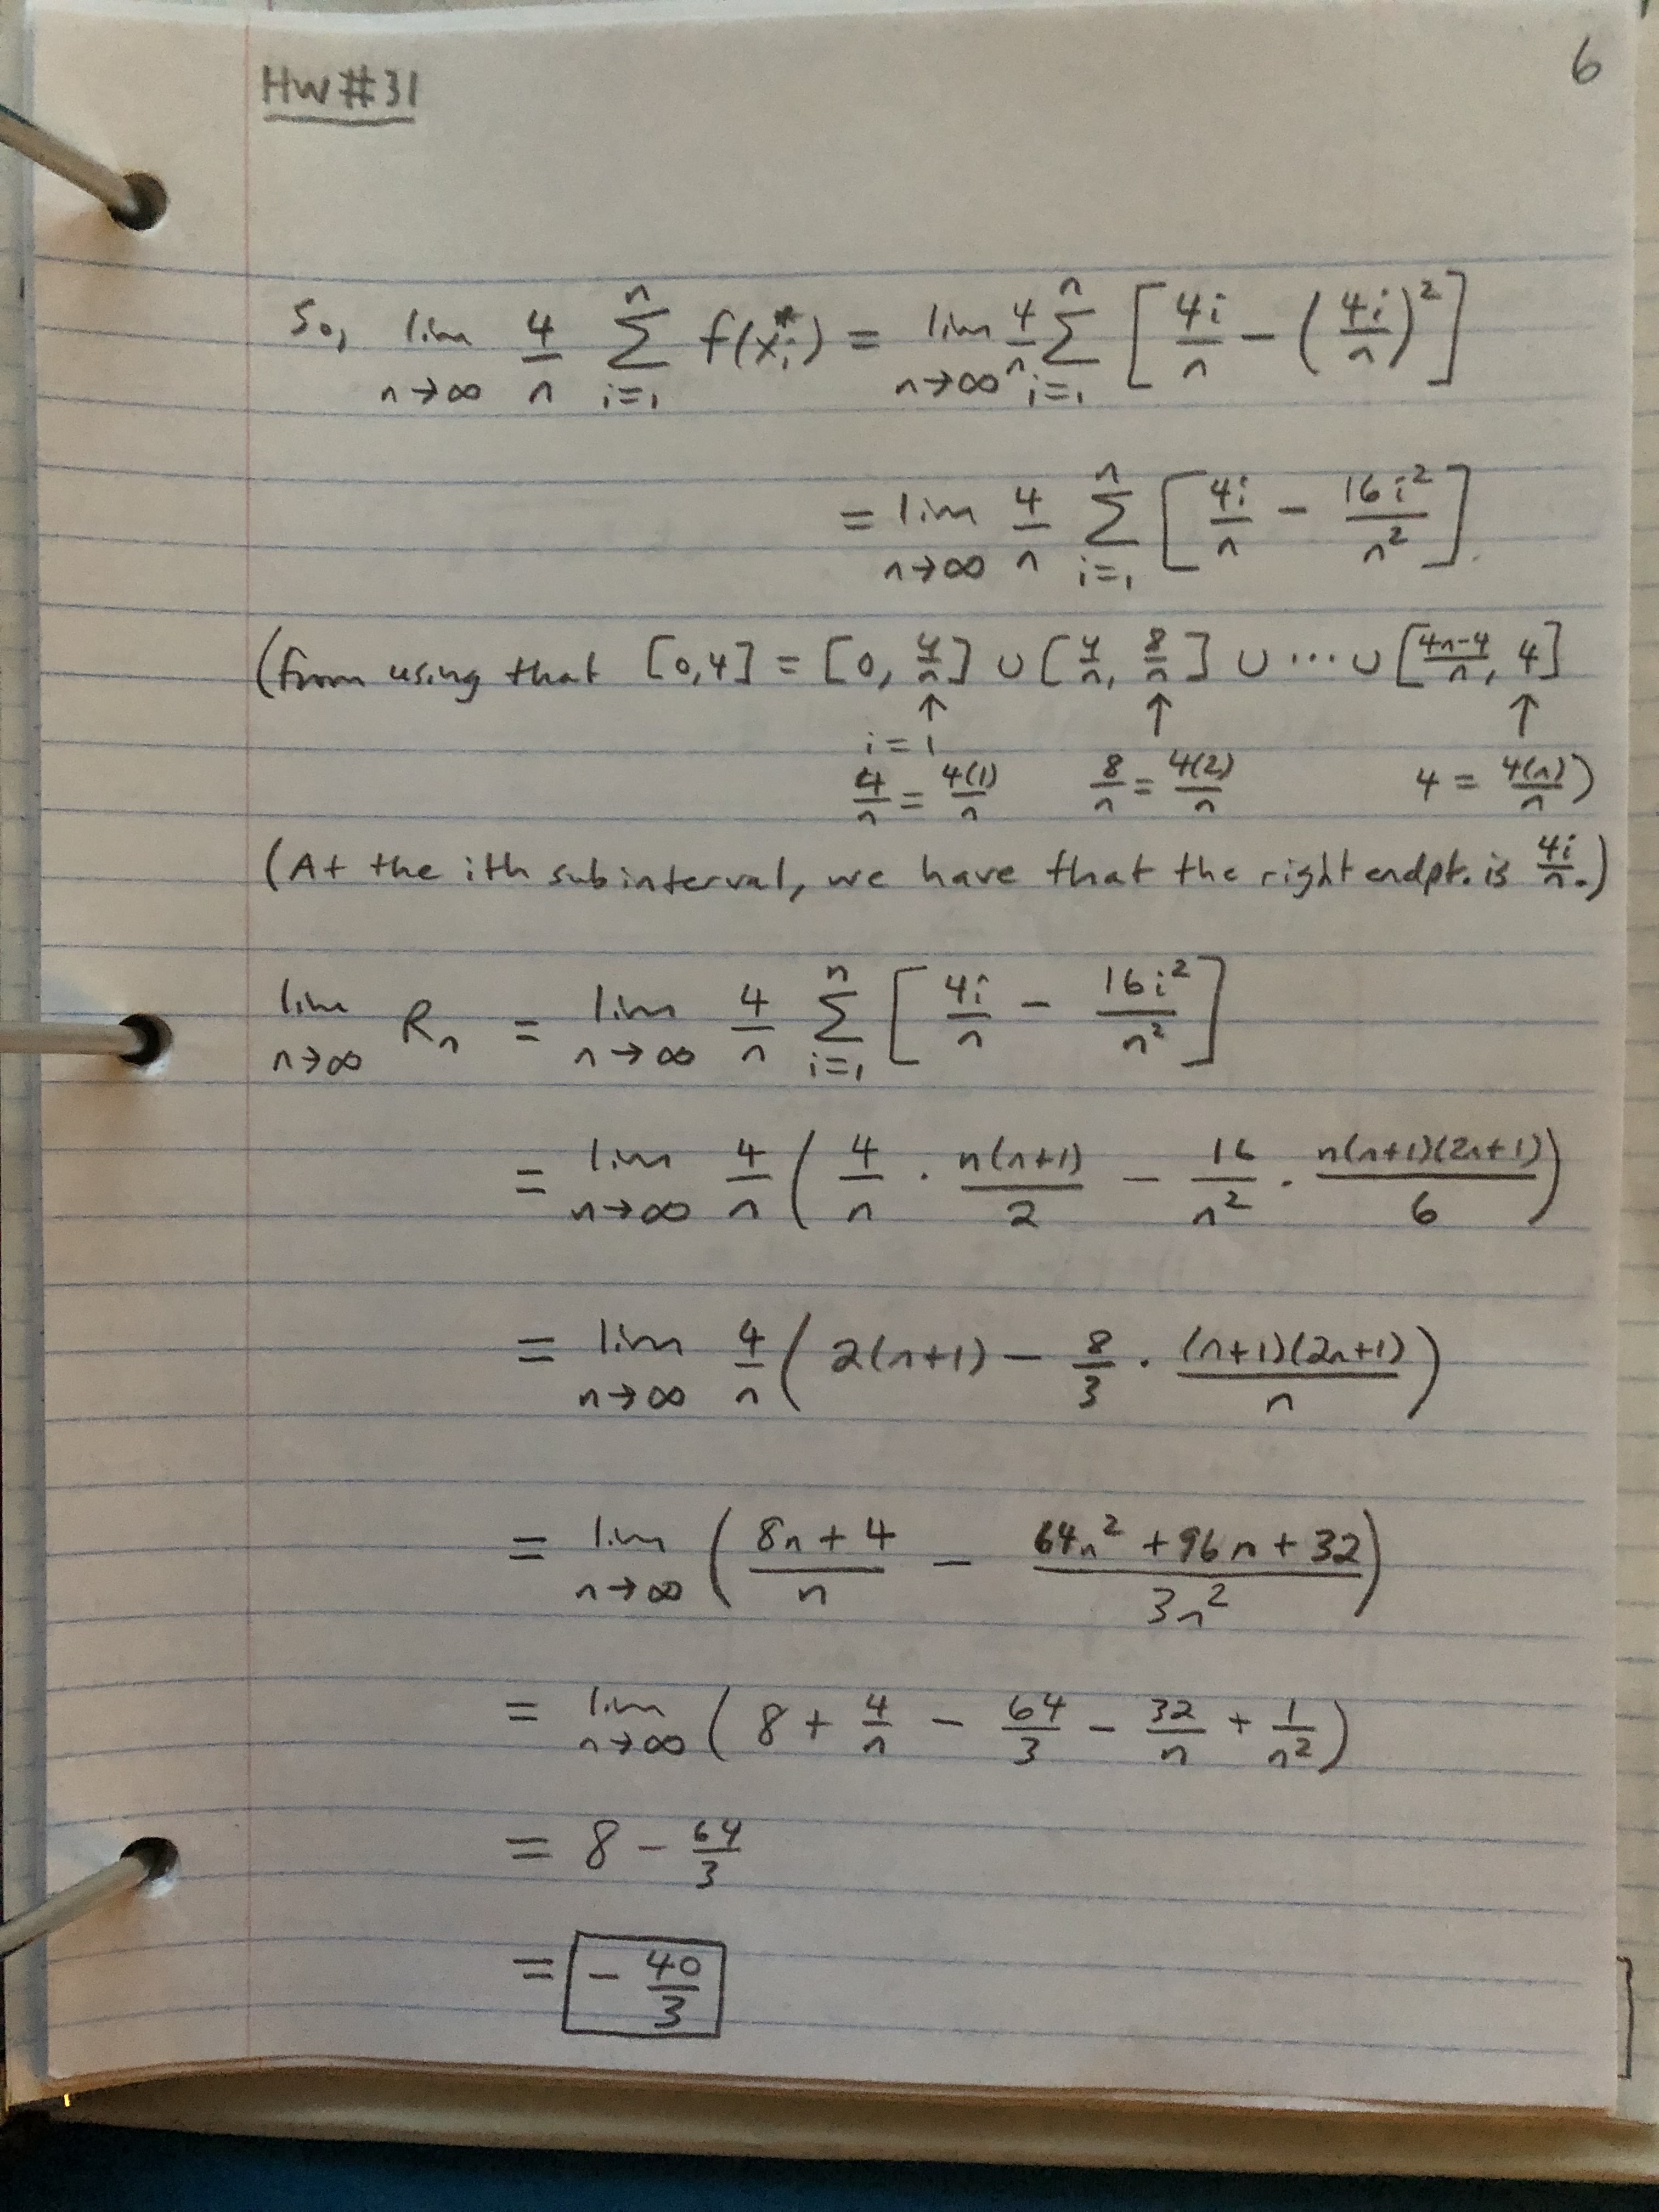 6
HW#31
So, lim n→∞ 4/n ∑ i=1 n f(x_i^*) = lim n→∞ 4/n ∑ i=1 n [4i/n − (4i/n)²]
= lim n→∞ 4/n ∑ i=1 n [4i/n − 16i²/n²].
(from using that [0,4] = [0, 4/n] ∪ [4/n, 8/n] ∪ ⋯ ∪ [4n-4/n, 4]
↑ ↑ ↑
i=1
4/n = 4(1)/n 8/n = 4(2)/n 4 = 4(n)/n)
(At the ith subinterval, we have that the right endpt. is 4i/n.)
lim n→∞ R_n = lim n→∞ 4/n ∑ i=1 n [4i/n − 16i²/n²]
= lim n→∞ 4/n (4/n · n(n+1)/2 − 16/n² · n(n+1)(2n+1)/6)
= lim n→∞ 4/n (2(n+1) − 8/3 · (n+1)(2n+1)/n)
= lim n→∞ (8n+4/n − 64n²+96n+32/3n²)
= lim n→∞ (8 + 4/n − 64/3 − 32/n + 1/n²)
= 8 − 64/3
= − 40/3